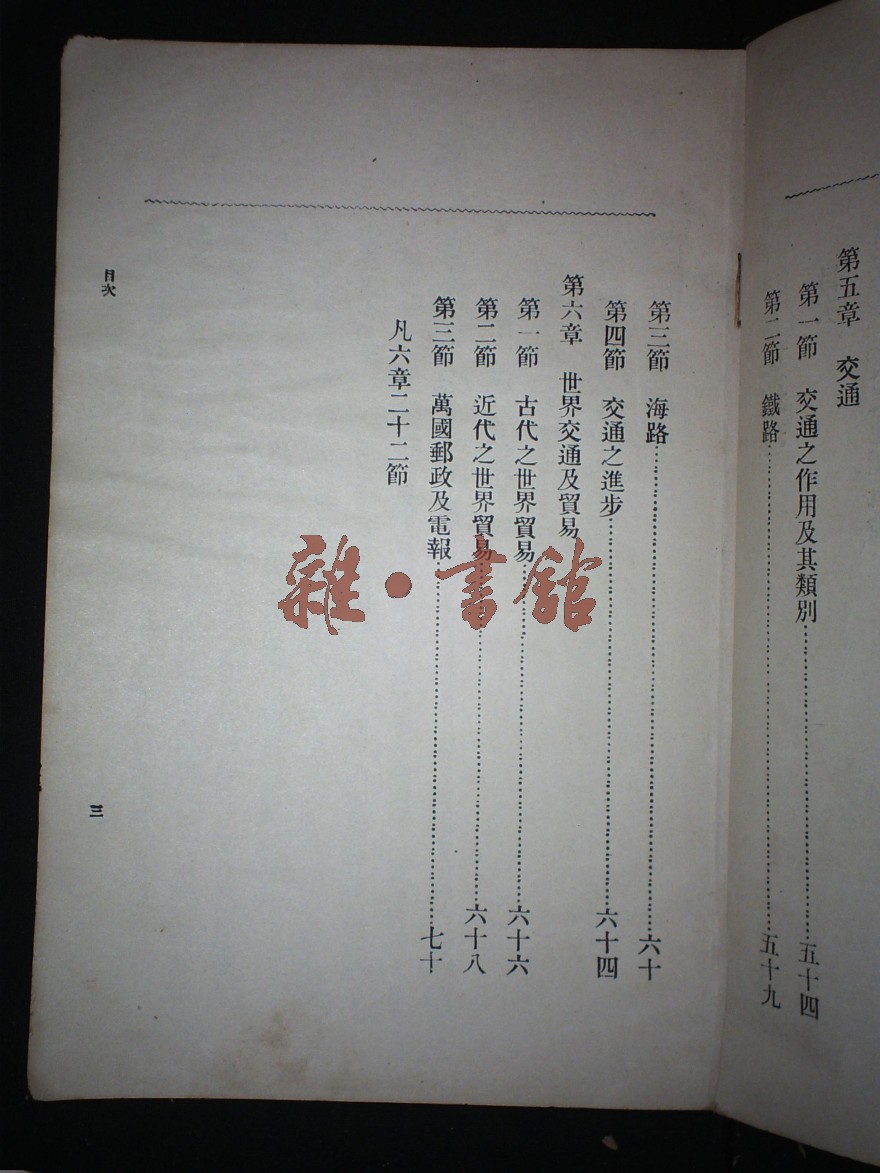 第五章　交通
第一節　交通之作用及其類別……五十四
第二節　鐵路……五十九
第三節　海路……六十
第四節　交通之進步……六十四
第六章　世界交通及貿易
第一節　古代之世界貿易……六十六
第二節　近代之世界貿易……六十八
第三節　萬國郵政及電報……七十
凡六章二十二節
目次
三
雜・書館